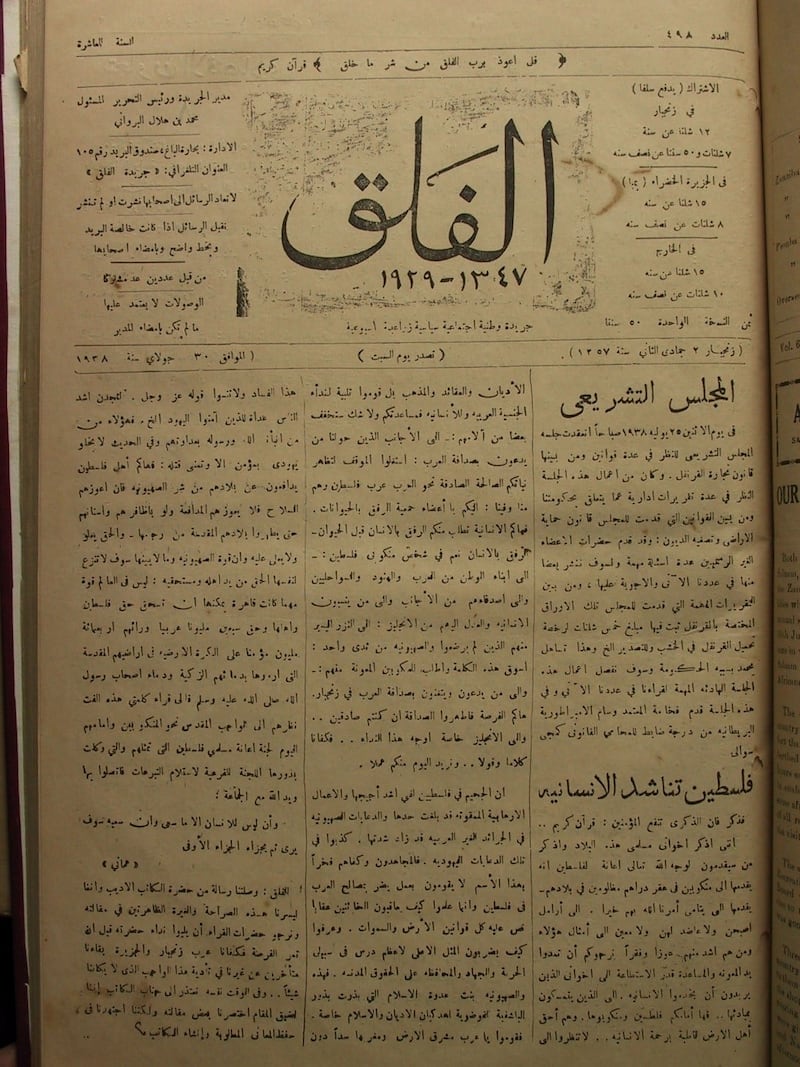 العدد ٤٩٨
السنة العاشرة
﴿ قل اعوذ برب الفلق من شر ما خلق ﴾ قرآن كريم
الاشتراك ( يدفع سلفا )
في زنجبار
١٢ شلنا عن سنة
٧ شلنات و ٥٠ سنتا عن نصف سنه
فى الجزيرة الخضراء ( بمبا )
١٥ شلنا عن سنه
٨ شلنات عن نصف سنه
فى الخارج
١٥ شلنا عن سنه
١٠ شلنات عن نصف سنه
ثمن النسخة الواحدة ٥٠ سنتا
الفلق
١٣٤٧-١٩٢٩
جريدة وطنية اجتماعية سياسية زراعية اسبوعية
مدير الجريدة ورئيس التحرير المسئول
محمد بن هلال البرواني
العنوان التلغرافي : « جريدة الفلق »
لا تعاد الرسائل الى اصحابها نشرت او لم تنشر
تقبل الرسائل اذا كانت خالصة البريد
وبخط واضح وبامضاء اصحابها
من قبل عددين عد مشتركا
الوصولات لا يعتمد عليها
ما لم تكن بامضاء المدير
( زنجبار ٢ جمادى الثاني سنة ١٣٥٧ ).
( تصدر يوم السبت )
( الموافق ٣٠ جولاي سنة ١٩٣٨
المجلس التشريعي
فى يوم الاثنين ٢٥ يوليه ١٩٣٨ صباحاً انعقدت جلسة
المجلس التشريعى للنظر في عدة قوانين ومن بينها
قانون تجارة القرنفل . وكان من اعمال هذه الجلسة
النظر في عدة تقريرات ادارية مما يتعلق بحكومتنا
ومن بين القوانين التي قدمت للمجلس قانون حماية
الاراضي وتصفية الديون : وقد قدم حضرات الاعضاء
الغير الرسميين عدة اسئلة مهمة ولسوف ننشر بعضا
منها في عددنا الآتى والاجوبة عليها ، ومن بين
التقريرات المهمة التي قدمت للمجلس تلك الاوراق
المختصة بالقرنفل ثبت فيها مبلغ خمس شلنات لرخصة
تحميل القرنفل في الخشب وللتصدير الخ وهذا تساهل
الجلسة الهادئه المهمة لقراءنا في عددنا الآتي وفي
هذه الجلسة قدم فخامة المعتمد وسام الامبراطورية
البريطانيه من درجة ضابط للمحامي القانونى كمجى
سوالى
فلسطين تناشد الانسانيه
فذكر فان الذكرى تنفع المؤمنين : قرآن كريم ..
انى اذكر اخوانى مسلمى هذه البلاد واذكر
من سيقدمون لوجه الله تعالى اعانة لفلسطين انه
يقدمها الى منكوبين فى عقر دراهم مظلومين في بلادهم-
يقدمها الى يتامى أمرنا الله بهم خيرا . الى أرامل
اصبحن ولا عاضد لهن ولا معين الى أمثال هؤلاء
ومن هم اشد منهم عوزا وفقراً نرجوكم أن تمدوا
يد المعونه والمساعدة قدر الاستطاعة الى اخوانى الذين
يريدون أن يخدموا الانسانيه . الى الذين يتمسكون
بمبادئها .. فها أمامكم فلسطين ومنكوبوها . وهم أحق
أهل الارض قاطبة برحمة الانسانيه .. لا تنظروا الى
الأديان والعقائد والمذهب بل قوموا تلبية لنداء
الجنسية العربيه وللأنسانيه فمساعدتكم ولا شك ستخفف
بعضا من آلامهم : ــ الى الأجانب الذين حولنا من
يدعون بصداقة العرب : استغلوا الموقف لتظهر
نياتكم الصالحة الصادقة نحو العرب عرب فلسطين وهم
منا وفينا : اليكم يا أعضاء جمعية الرفق بالحيوانات .
فهاكم الانسانية تطلب منكم الرفق بالانسان قبل الحيوان-
الرفق بالانسان نعم في شخص منكوبى فلسطين : ــ
الى ابناء الوطن من العرب والهنود والسواحليين
والى أصدقائهم من الأجانب والى من ينتمون
منهم الذين لم يرضعوا والصهيونيه من ثدى واحد :
أسوق هذه الكلمة واطلب للمنكوبين المعونة منهم : ــ
والى من يدعون ويتغنون بصداقة العرب في زنجبار.
هاكم الفرصة فاظهروا الصداقة ان كنتم صادقين ..
والى الأنجليز خاصة اوجه هذا النداء .. فكفانا
كلاما وقولا .. ونريد اليوم منكم عملا .
ان الجحيم في فلسطين لفي اشد أجيجها والاعمال
الارهابية الممقوته قد بلغت حدها والدعايات الصهيونيه
في الجرائد الغير العربيه قد زاد شدتها . كذبوا في
تلك الدعايات اليهوديه . فالمجاهدون وكفاهم فخراً
بهذا الأسم لا يقومون بعمل يضر بصالح العرب
في فلسطين وانها علموا كيف يعاقبون الخائنين عقابا
نص عليه كل قوانين الأرض والسموات . وعرفوا
كيف يضربون المثل الاعلى لاعظم درس فى سبيل
الحرية والجهاد والمحافظه على الحقوق المدنيه . فهذه
والصهيونيه بنت عدوة الاسلام التي بذرت بذور
البلشفية كفوضوية لهدكيان الاديان والاسلام خاصة .
فقوموا يا عرب مشرق الارض ومغربها سداً دون
هذا الفساد ولا تنسوا قوله عز وجل . لتجدن اشد
الناس عداوة للذين آمنوا اليهود الخ . فهؤلاء من
من أنبأنا الله ورسوله بعداوتهم وفى الحديث لا يخلو
يهودى بمؤمن الا وتمنى قتله : فهاكم أهل فلسطين
يدافعون عن بلادهم من شر الصهيونيه فان اعوزهم
السلاح فلا يعوزهم المدافعة ولو بأظافرهم واسنانهم
حتى يطهروا بلادهم المقدسة من رجسها . والحق يعلو
ولا يعلى عليه وان قوة الصهيونيه وما لا بينها سوف لا تنزع
لنفسها الحق من يد اهله ومستحقيه : ليس في العالم قوة
مهما كانت قاهرة يمكنها ان تسحق حق فلسطين
واهلها وحق سبعين مليونا عربيا ورائهم اربعمائة
مليون مؤمنا على الكرة الارضيه فى اراضيهم المقدسة
التى ارووها بدمائهم الزكية ودماء أصحاب رسول
الله صلى الله عليه وسلم فالى قراء كلمتي هذه الفت
نظرهم الى مواجب المقدس نحو المنكوبين وامامهم
اليوم لجنة اعانة مسلمي فلسطين التى تمثلهم والتي وكلت
بدورها اللجنة الفرعية لاستلام التبرعات فاتصلوا بها
ويد الله مع الجماعة ؛
وأن ليس للانسان الا ما سعى وان سعيه سوف
يرى ثم يجزاه الجزاء الأوفى
( عمانى )
الفلق : وصلتنا رسالة من حضرة الكاتب الاديب واننا
ليسرنا هذه الصراحة والغيرة الظاهرتين في مقالته
ونرجو حضرات القراء أن يلبوا نداء حضرته قبل ان
تمر الفرصة فكفانا عرب زنجبار والجزيرة بقاءنا
متأخرين عن غيرنا في تأدية هذا الواجب الذى لا يكلفنا
شيئاً .. وفى الوقت نفسه نعتذر الى جناب الكاتب إننا
لضيق المقام اختصرنا بعض مقالته ولكننا اجتهرنا فى
حفظ المعانى المطلوبة وإنشاء الكاتب